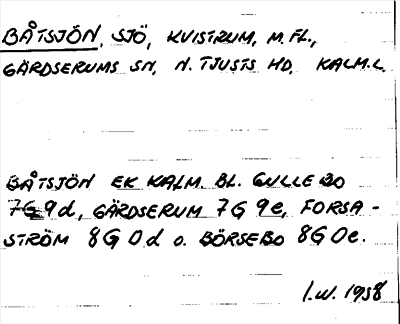 BÅTSJÖN, SJÖ, KVISTRUM, M. FL.,
GÄRDSERUMS SN, N. TJUSTS HD, KALM. L.
BÅTSJÖN EK KALM. BL. GULLEBO
7G 9d, GÄRDSERUM 7G 9e, FORSA-
STRÖM 8G 0d O. BÖRSEBO 8G 0e.
I.W. 1958